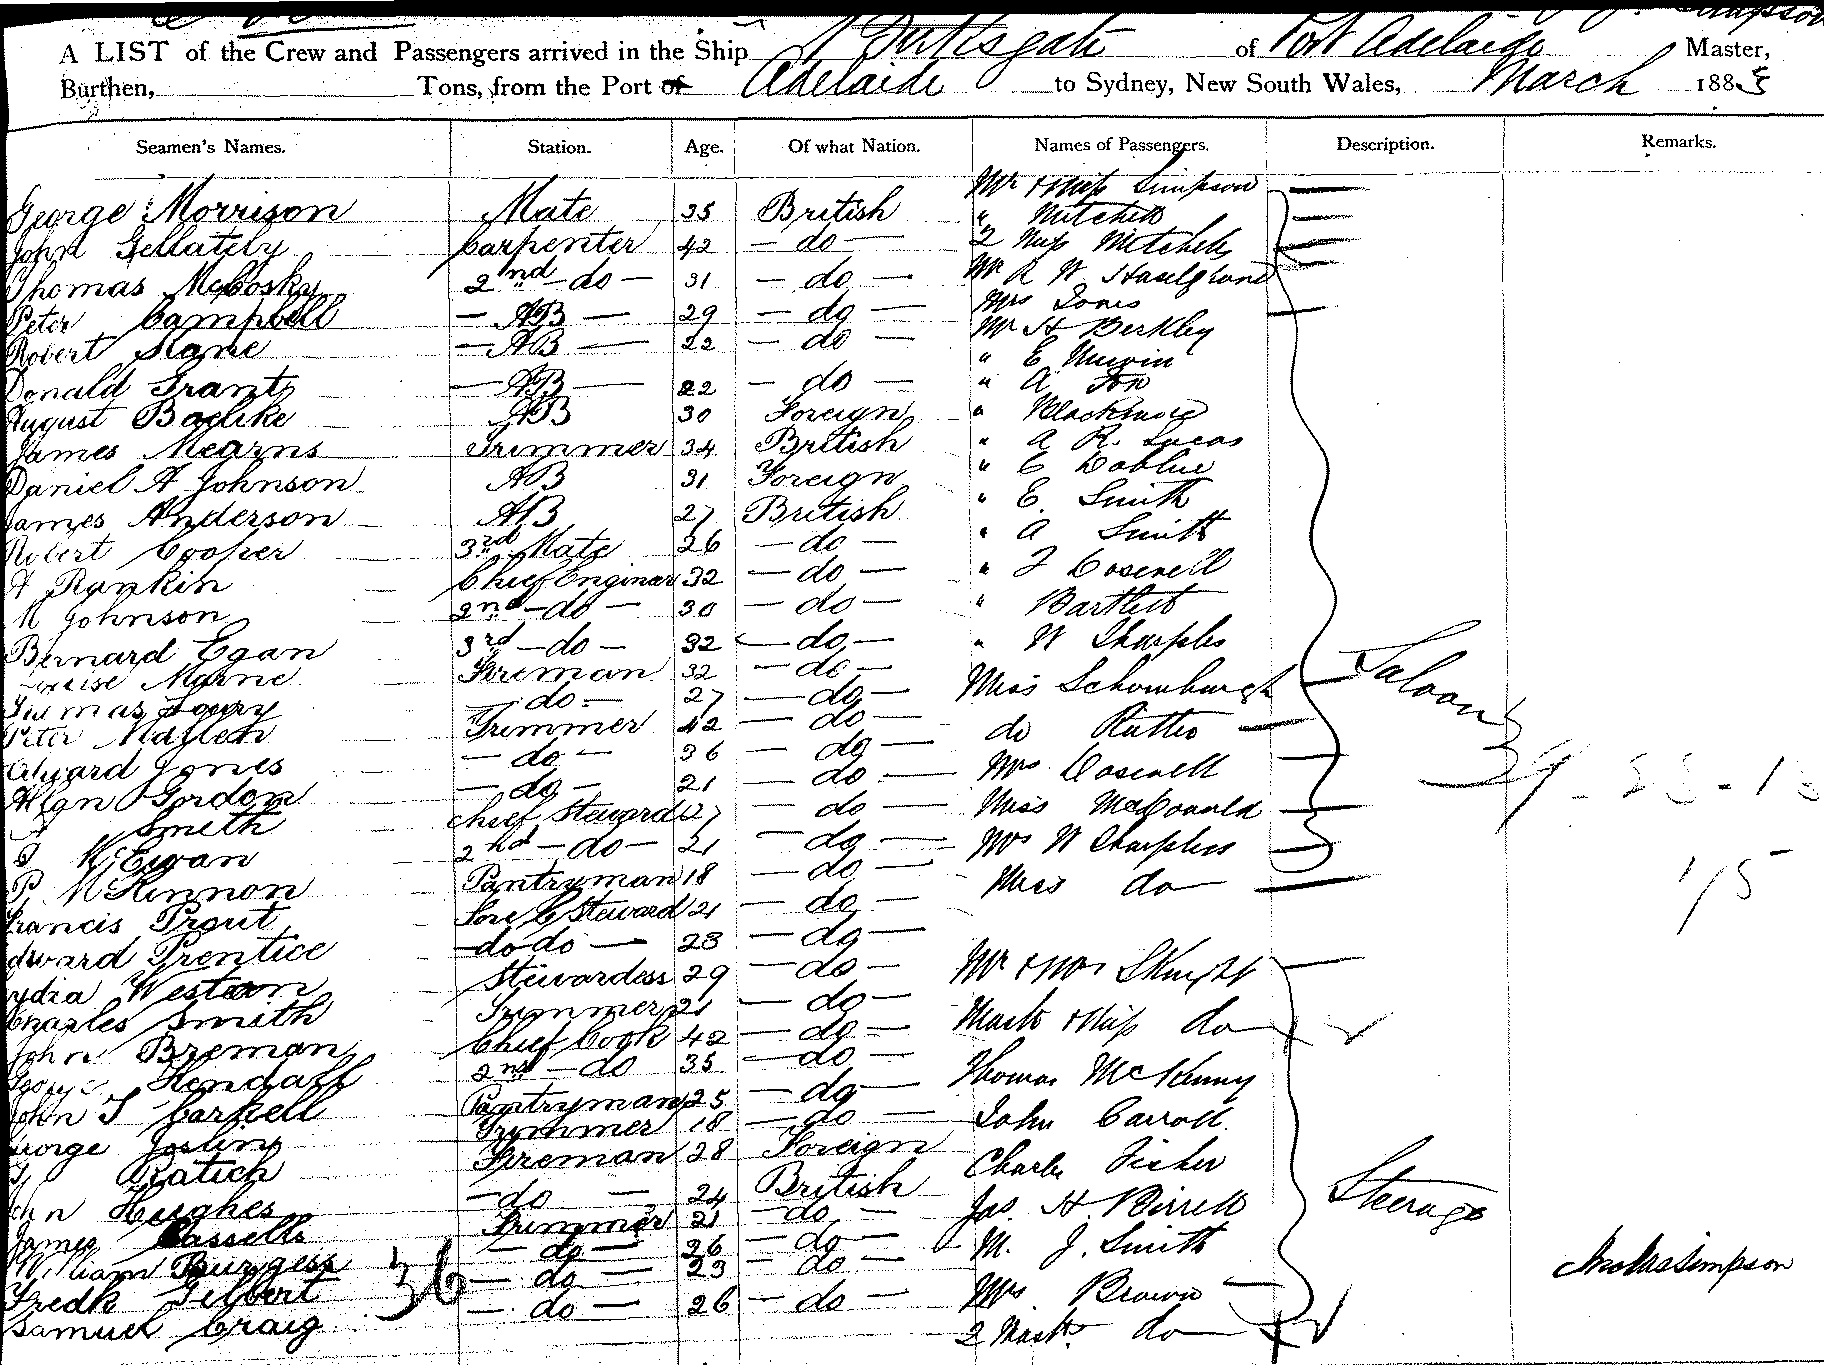 A LIST of the Crew and Passengers arrived in the Ship of Port Adelaide Master,
Burthen, Tons, from the Port of Adelaide to Sydney, New South Wales, March 1885
Seamen's Names. Station. Age. Of what Nation. Names of Passengers. Description. Remarks.
George Morrison Mate 35 British Mr & Miss Simpson
John Gellately Carpenter 42 - do - " Mitchell
Thomas McCosky 2nd - do - 31 - do - 2 Miss Mitchell
Peter Campbell - AB - 29 - do - Mr A W
Robert - AB - 22 - do - Mrs Jones
Donald Grant - AB - 22 - do - Mr H Berkley
August AB 30 Foreign " E Unwin
James Mearns Trimmer 34 British " A Fox
Daniel A Johnson AB 31 Foreign " Blackmore
James Anderson AB 27 British " A R. Lucas
Robert Cooper 3rd Mate 26 - do - " E
A Rankin Chief Engineer 32 - do - " E. Smith
M Johnson 2nd - do - 30 - do - " A Smith
Bernard Egan 3rd - do - 32 - do - " F Cosenell
Fireman 32 - do - " Bartlett
Thomas - do - 27 - do - " W Sharples
Peter Trimmer 42 - do - Miss Schomburgk Saloon
Edward Jones - do - 36 - do - do
Allan Gordon - do - 21 - do - Mrs Cosenell
A Smith Chief Steward 27 - do - Miss McDonald
McEwan 2nd - do - 21 - do - Mrs W Sharples
P McKinnon Pantryman 18 - do - Miss do
Francis Prout Fore C Steward 21 - do -
Edward Prentice - do do - 23 - do -
Lydia Western Stewardess 29 - do - Mr & Mrs
Charles Smith Trimmer 21 - do - Mast & Miss do
John Breman Chief Cook 42 - do - Thomas McKenny
George Kendall 2nd - do 35 - do - John Carroll
John T Carkell Pantryman 25 - do - Charles Fisher
George Josling Trimmer 18 - do - Jas. H. Birrell Steerage
Ratich Fireman 28 Foreign M. J. Smith
John Hughes - do - 24 British Mrs Brown
James Cassells Trimmer 21 - do - 2 Mast do
William Burgess - do - 26 - do -
Fredk - do - 23 - do -
Samuel Craig - do - 26 - do -
36
15